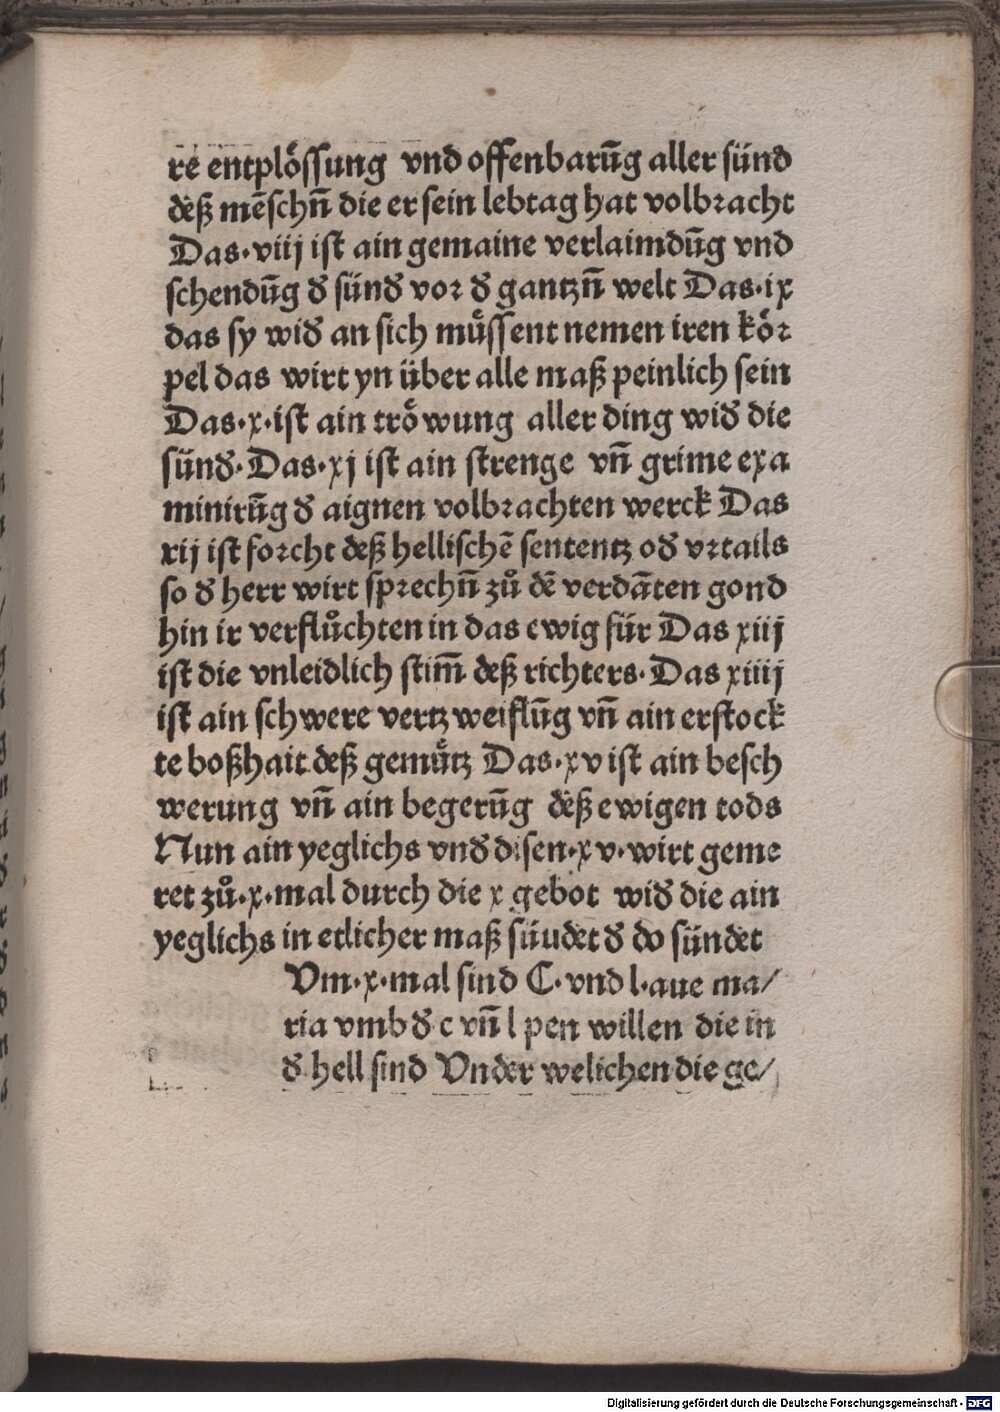 re entplössung vnd offenbarūg aller sünd
deß mēschn̄ die er sein lebtag hat volbracht
Das·viij ist ain gemaine verlaimdūg vnd
schendūg d̕ sünd̕ vor d̕ gantzn̄ welt Das·ix
das sy wid̕ an sich müssent nemen iren kör
pel das wirt yn über alle maß peinlich sein
Das·x·ist ain tröwung aller ding wid̕ die
sünd̕·Das·xj ist ain strenge vn̄ grime exa
minirūg d̕ aignen volbrachten werck Das
xij ist forcht deß hellischē sententz od̕ vrtails
so d̕ herr wirt sprechn̄ zů dē verdāten gond
hin ir verflůchten in das ewig für Das xiij
ist die vnleidlich stim̄ deß richters·Das xiiij
ist ain schwere vertzweiflūg vn̄ ain erstock
te boßhait deß gemütz Das·xv ist ain besch
werung vn̄ ain begerūg deß ewigen tods
Nun ain yeglichs vnd̕ disen·xv·wirt geme
ret zů·x·mal durch die x gebot wid̕ die ain
yeglichs in etlicher maß süudet d̕ do sündet
Vm·x·mal sind C·vnd l·aue ma/
ria vmb d̕ c vn̄ l pen willen die in
d̕ hell sind Vnder welichen die ge/
Digitalisierung gefördert durch die Deutsche Forschungsgemeinschaft - DFG